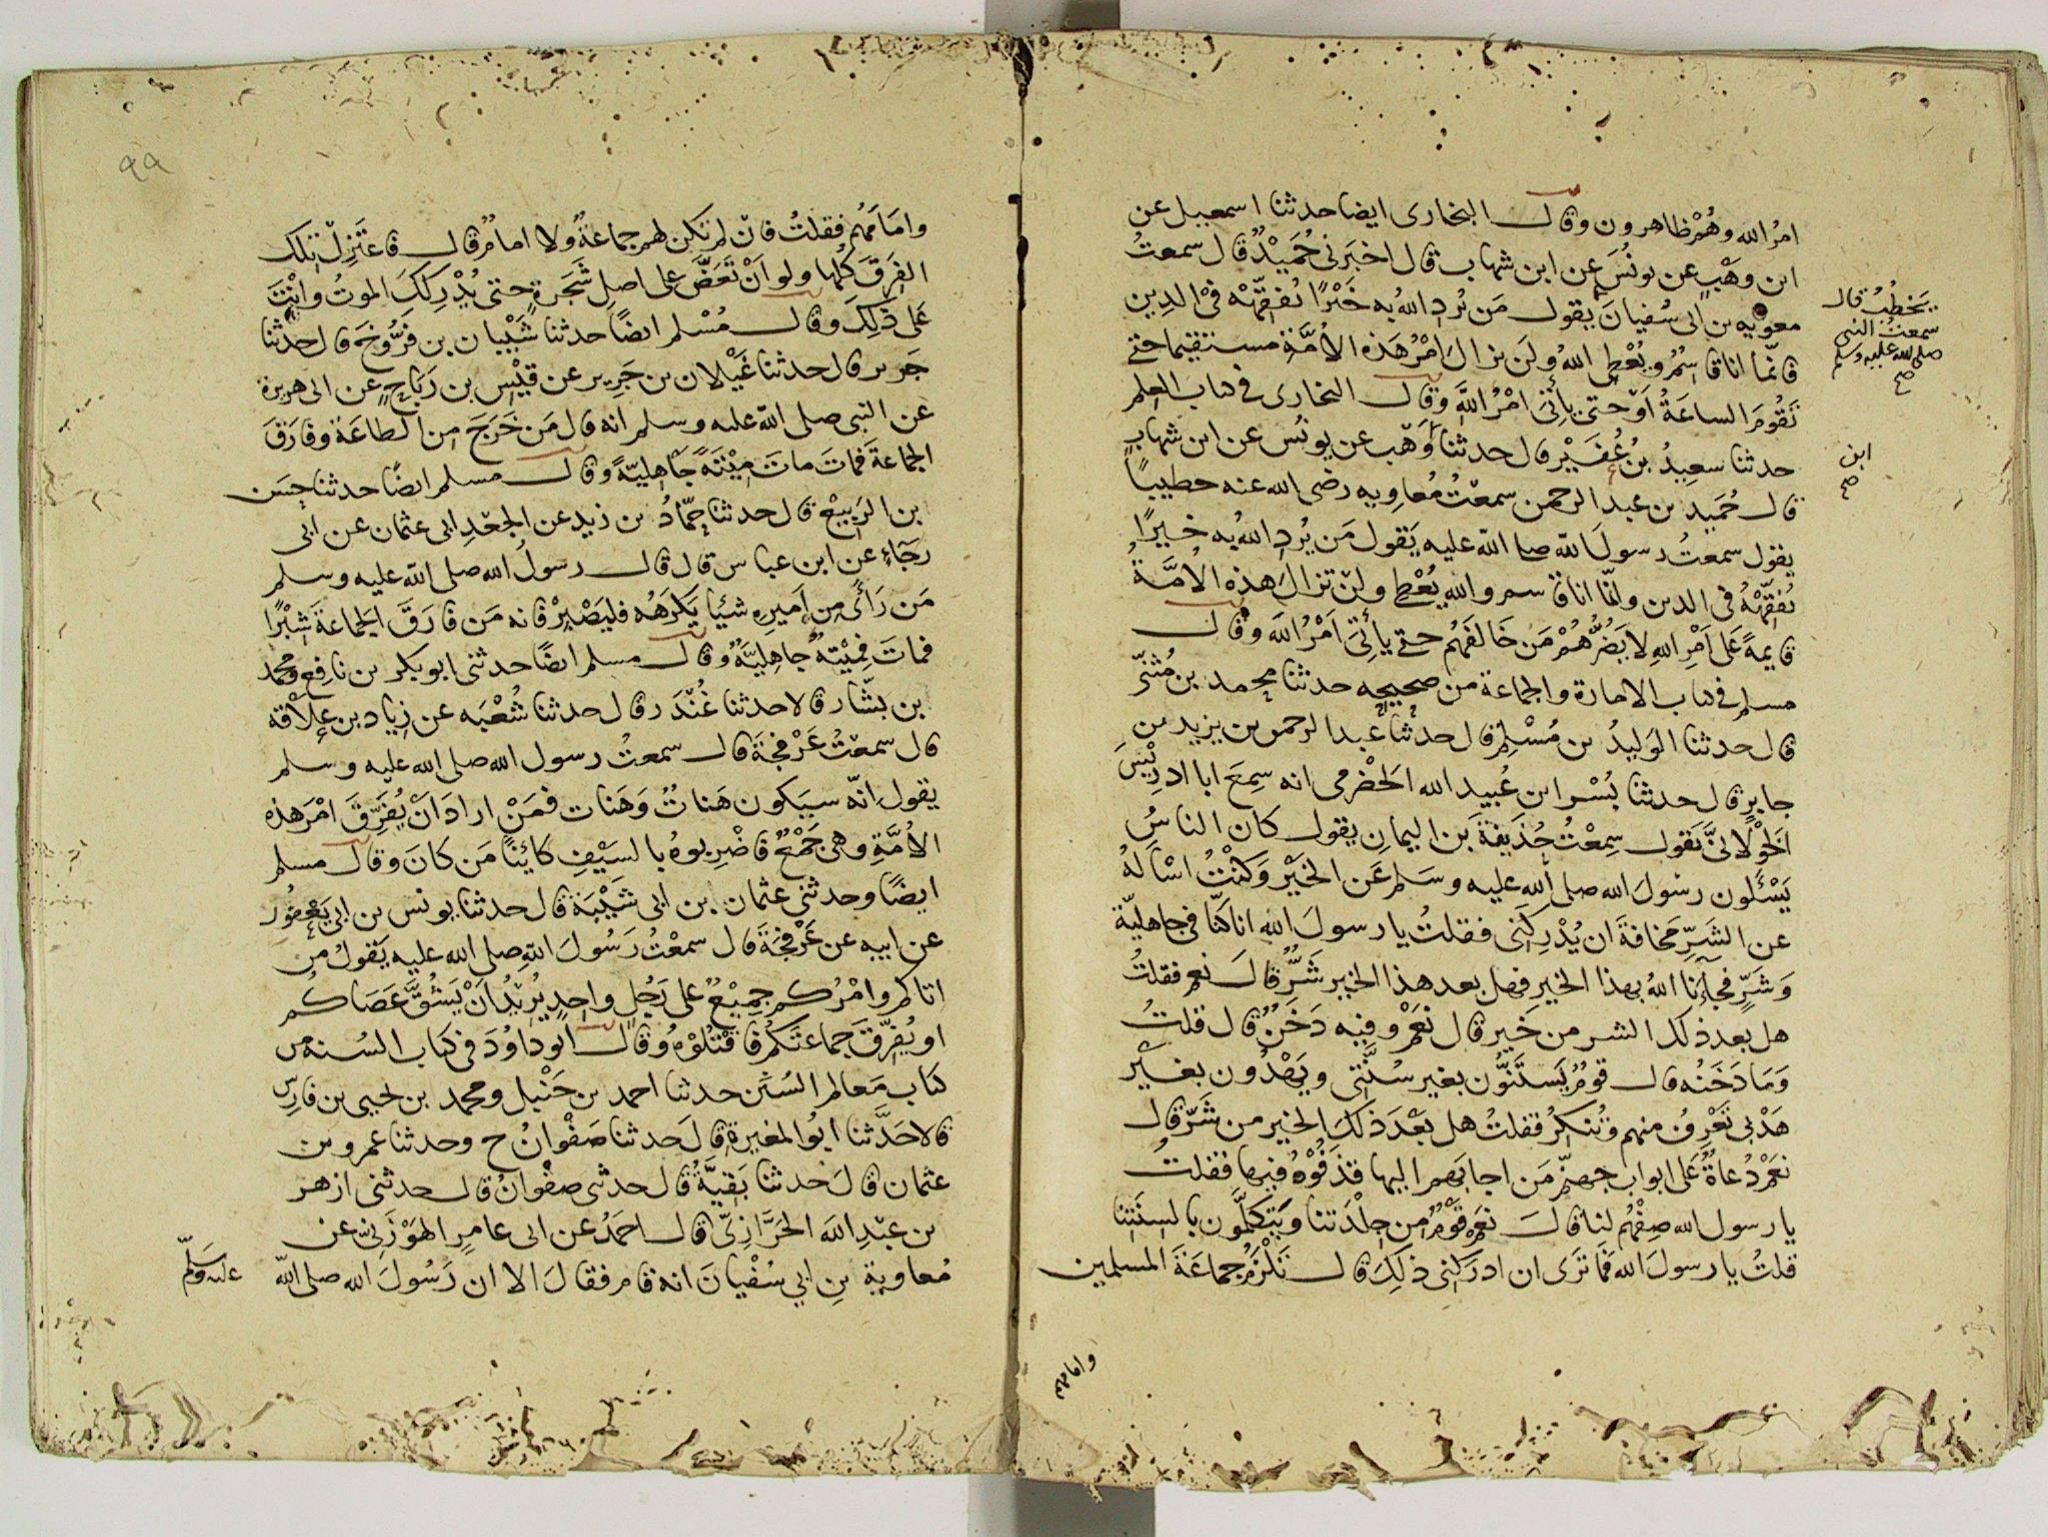 امرُ الله وهُمْ ظاهرون وقال البخارى ايضا حدثنا اسمعيل عن
ابن وهْب عن يونُسَ عن ابن شهاب قال اخبَرنى حُمَيْدٌ قال سمعتُ
معويه بن ابى سُفيانَ يقول مَن يُردِ اللهُ به خَيْرًا يُفقّهْهُ فى الدين
يَخطُبُ قال
سمعتُ النبى
صلى الله عليه وسلم
صح
فانّما انا قاسِمٌ ويُعْطِى اللهُ ولَن يزالَ امْرُ هَذه الأمَّةِ مستقيما حتى
تَقُومَ الساعَةُ اوْ حتى يأتىَ امْرُ اللهِ وقال البخارى فى كتاب العلم
حدثنا سعِيدُ بنُ عُفَيْر قال حدثنا وَهْب عن يونُس عن ابن شهاب
ابن
صح
قال حُمَيد بن عبد الرحمن سمعْتُ مُعاوِيه رضى الله عنه خطيبًا
يقول سمعتُ رسولَ الله صلى الله عليه يَقول مَن يُرِدِ اللهُ به خيرًا
يُفقِّهْهُ فى الدين وانَّما انا قاسم والله يُعْطِى ولنْ تزالَ هذه الأمَّةُ
قايمةً عَلى اَمْرِ اللهِ لا يَضُرُّهُمْ مَن خَالفَهُم حتى يأتِىَ اَمْرُ الله وقال
مسلم فى كتاب الامارة والجماعة من صحيحِه حدثنا محمد بن مُثنّى
قال حدثنا الوَليدُ بن مُسْلِم قال حدثنا عبد الرحمن بن يزيد بن
جابرٍ قال حدثنا بُسْر ابن عُبيد الله الحَضْرمى انه سِمعَ ابا ادرِيْسَ
الخَوْلانىَّ يَقول سمِعْتُ حُذَيفَةَ بن اليمانِ يقول كان الناسُ
يَسْئَلون رسُولَ الله صلى الله عليه وسَلم عَن الخيْر وَكنْتُ اسْألهُ
عن الشَرِّ مَخافةَ ان يُدْرِكَنِى فقلتُ يا رسولَ الله انا كنّا فى جاهليّة
وَشَرٍّ فجآءَنا اللهُ بهذا الخير فهل بعد هذا الخير شَرٌّ قالَ نعم فقلتُ
هل بعد ذلك الشر من خَير قال نعَمْ وفيه دَخَنٌ قال قلتُ
وَمَا دَخَنُه قال قومٌ يَستَنُّون بغير سُنَّتِى ويَهْدُون بغيْر
هَدْىِى تَعْرِفُ منهم وتُنكرُ فقلتُ هل بَعْدَ ذلكَ الخير من شَرّ قال
نعَمْ دُعاةٌ عَلى ابواب جهنّم مَن اجابَهم اليها قذَفُوْهُ فيها فقلتُ
يا رسول الله صِفْهُم لنا قالَ نعَم قَوْمٌ من جِلْدَتنا ويَتكلَّمُون بالسِنَتِنا
قلتُ يا رسولَ الله فما تَرَى ان ادرَكنِى ذلِكَ قال تَلْزَمُ جماعَةَ المسلمين
وامامهم
٩٩
وامَامَهُم فقلتُ فان لم تكن لهم جماعَةٌ ولا امامٌ قال فاعتَزِلْ تِلك
الفِرَقَ كُلَّها ولو اَنْ تَعَضَّ على اصلِ شَجَرةٍ حتى يُدْرِكَكَ الموتُ وانْتَ
عَلى ذلِكَ وقال مُسْلم ايضًا حدثنا شَيْبان بن فَرُّوخَ قال حدثنا
جَرير قال حدثنا غَيْلان بن جَرِير عن قيْسِ بن رَبَاحٍ عن ابى هريرة
عن النبى صلى الله عليه وسلم انه قال مَن خَرَجَ من الطاعَة وفارَقَ
الجماعَةَ فماتَ ماتَ مِيْتَةً جَاهِليّةً وقال مسلم ايضًا حدثنا حسَن
بن الرَبِيع قال حدثنا حمّادُ بن زيد عن الجعْدِ ابى عثمان عن ابى
رجَاءٍ عن ابن عباس قال قال رسولُ الله صلى الله عليه وسلم
مَن رَأَى مِن اَمِيرِه شيْئا يَكرَهُه فليَصْبِرْ فانه مَن فارَقَ الجماعَةَ شِبْرًا
فماتَ فمِيْتةٌ جاهِليَّةٌ وقال مسلم ايضًا حدثنى ابو بكر بن نافِع ومحمد
بن بشّار قالا حدثنا غُنْدَر قال حدثنا شُعْبَه عن زِياد بن عِلاقه
قال سمعْتُ عَرْفجَةَ قال سمعتُ رسول الله صلى الله عليه وسلم
يقول اِنّه سيَكون هَناتٌ وَهَنات فمَنْ ارادَ اَنْ يُفَرِّقَ امْرَ هذه
الأمَّةِ وهى جَمْعٌ فاضْرِبوهُ بالسَيْفِ كائِنًا مَن كانَ وقال مسلم
ايضًا وحدثنى عثمان بن ابى شَيْبَة قال حدثنا يونس بن ابى يَعْفُور
عن ابيه عن عَرْفجَةَ قال سمعْتُ رَسُولَ اللهِ صلى الله عليه يَقولُ من
اتاكم وامْرُكم جمِيْعٌ على رَجُلٍ واحِدٍ يُرِيْدُ اَنْ يَشُقَّ عَصَاكم
او يُفرِّق جَماعَتَكُم فاقْتُلُوْهُ وقال ابو داوُدَ فى كتاب السُنه من
كتاب مَعالم السُنَن حدثنا احمد بن حَنْبل ومحمد بن يحيى بن فارِس
قالا حَدَّثنا ابُو المغيرة قالَ حدثنا صَفْوانُ ح وحدثنا عمرو بن
عثمان قالَ حدثنا بَقيَّةُ قال حدثنى صفْوانُ قال حدثنى ازهر
بن عبْدِ الله الحَرَّازِىّ قال احمَدُ عن ابى عامرِ الهَوْزَنِىّ عن
مُعاوية بنِ ابى سُفْيانَ انه قام فقالَ الا ان رَسُولَ الله صلى الله
عليه وسَلّم